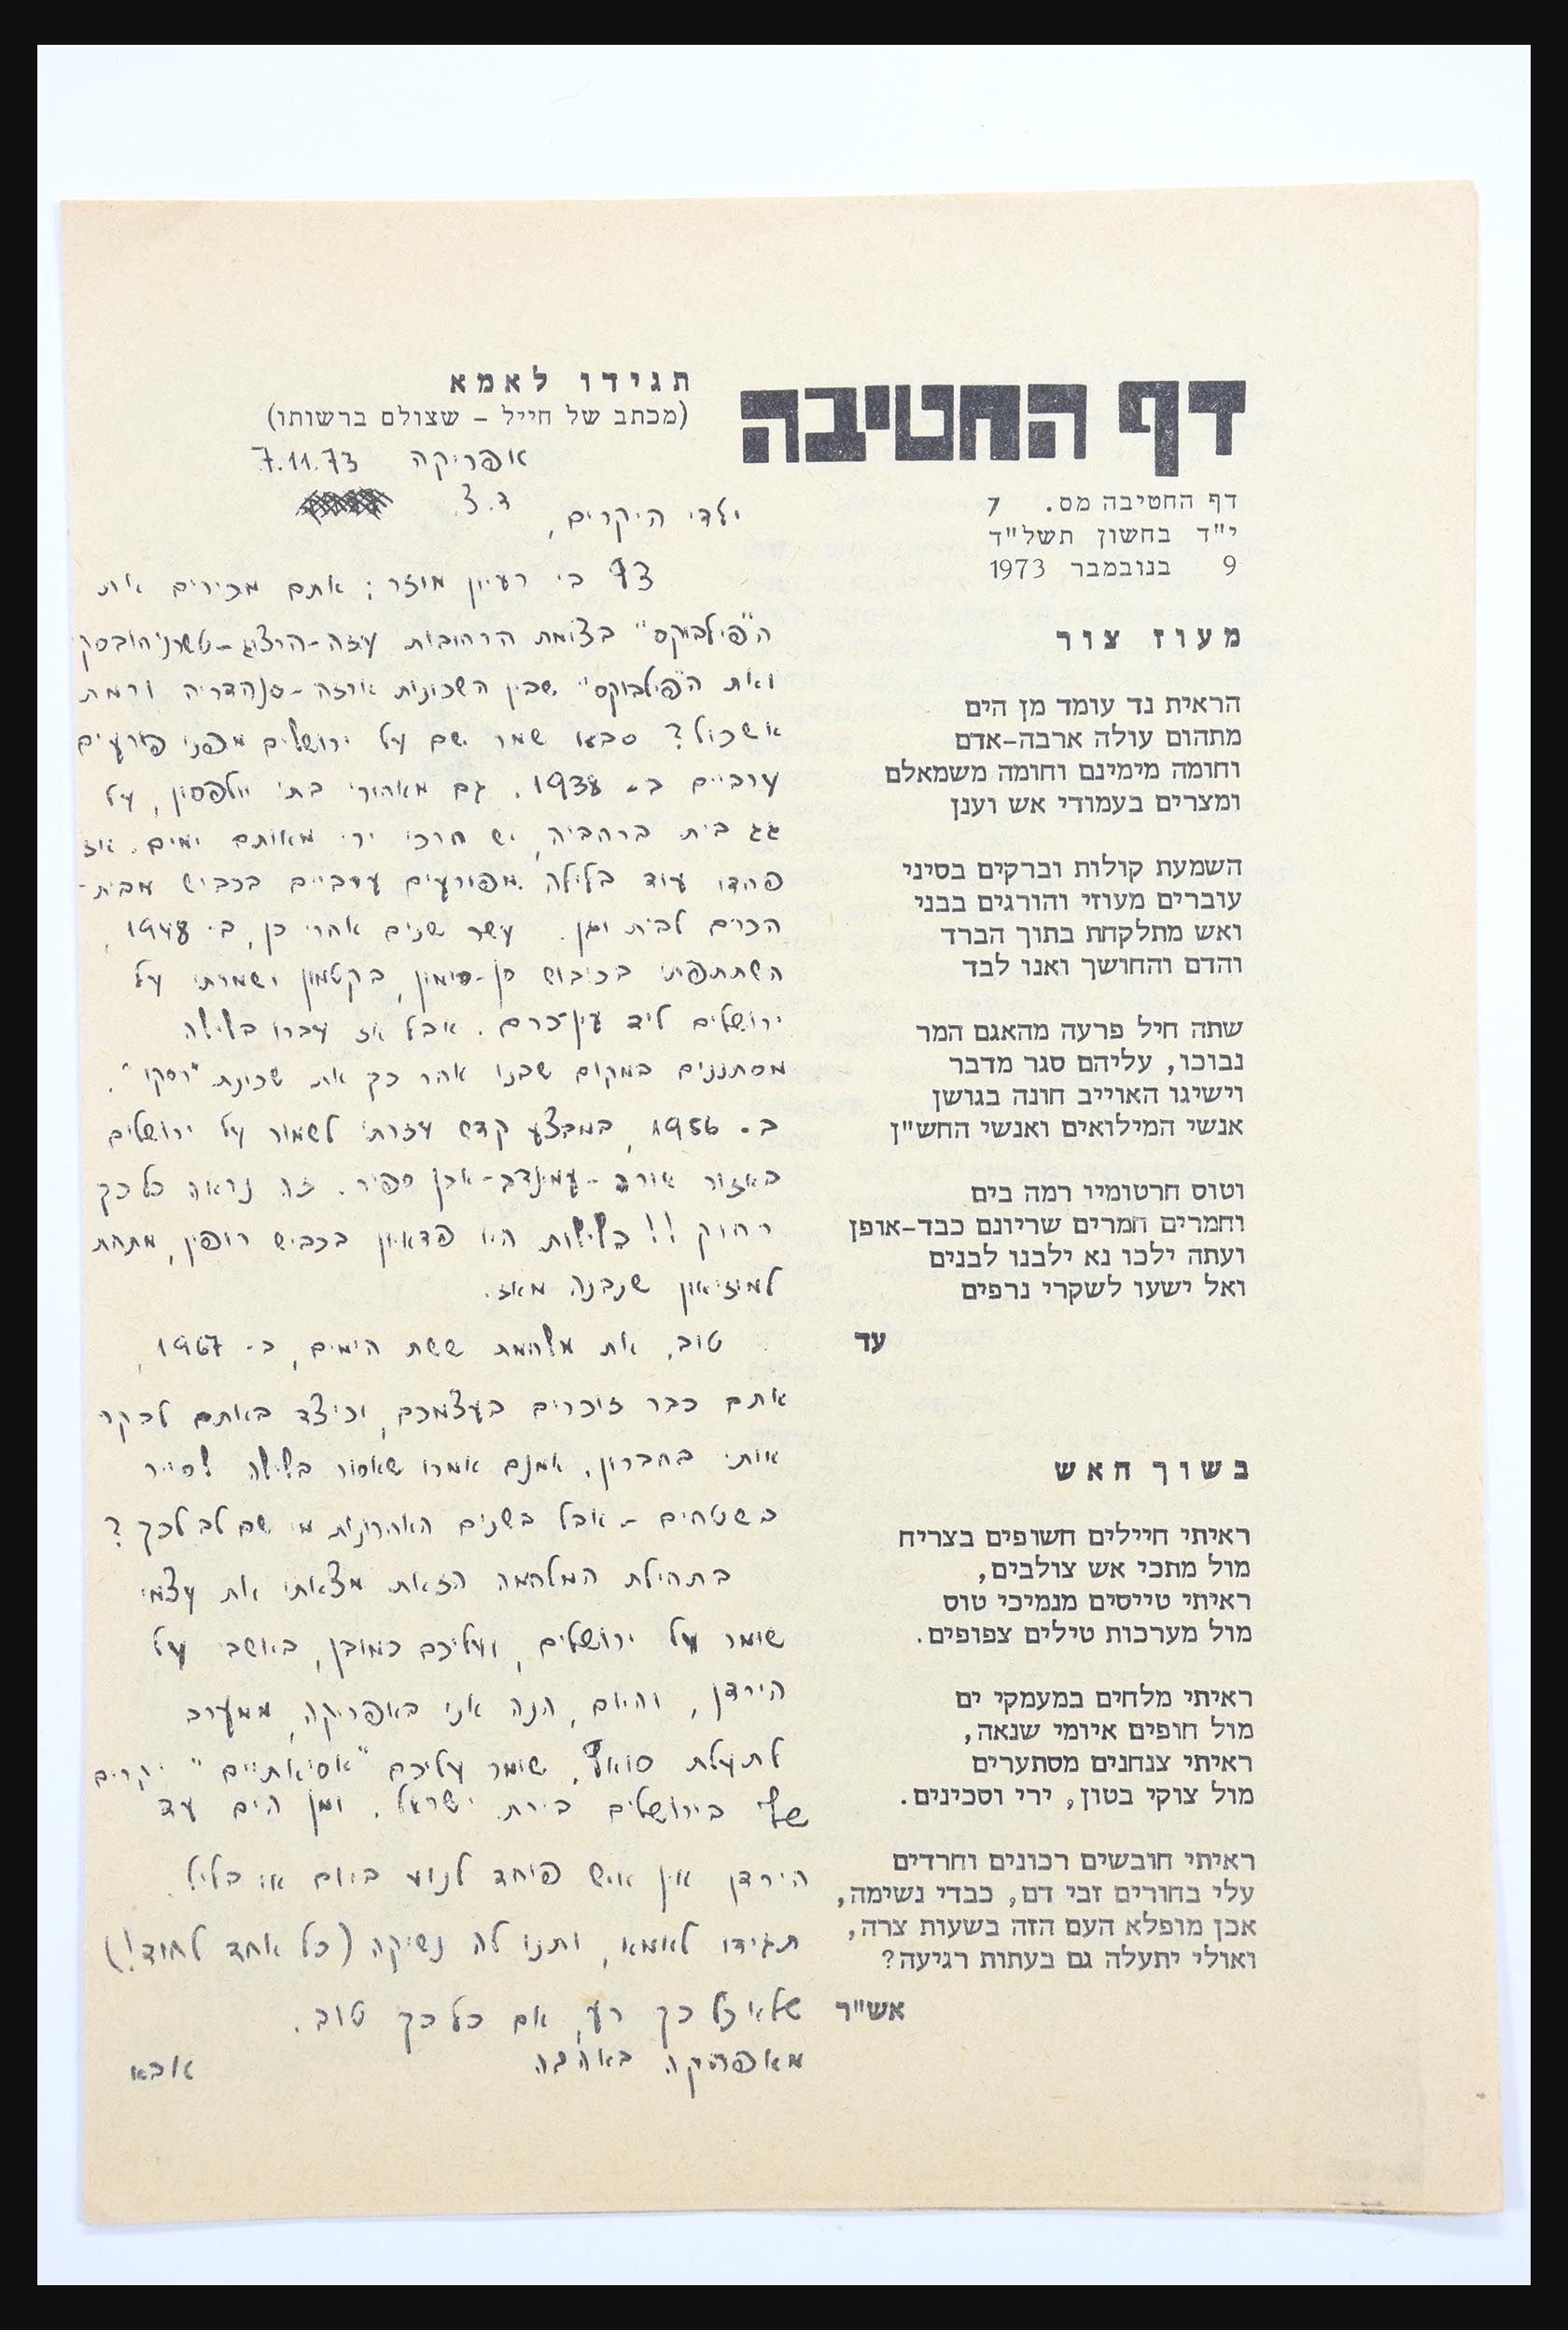 דף החטיבה
דף החטיבה מס. 7
י"ד בחשון תשל"ד
9 בנובמבר 1973
מעוז צור
הראית נד עומד מן הים
מתהום עולה ארבה-אדם
וחומה מימינם וחומה משמאלם
ומצרים בעמודי אש וענן
השמעת קולות וברקים בסיני
עוברים מעוזי והורגים בבני
ואש מתלקחת בתוך הברד
והדם והחושך ואנו לבד
שתה חיל פרעה מהאגם המר
נבוכו, עליהם סגר מדבר
וישיגו האוייב חונה בגושן
אנשי המילואים ואנשי החש"ן
וטוס חרטומיו רמה בים
וחמרים חמרים שריונם כבד-אופן
ועתה ילכו נא ילבנו לבנים
ואל ישעו לשקרי נרפים
עד
בשוך האש
ראיתי חיילים חשופים בצריח
מול מתכי אש צולבים,
ראיתי טייסים מנמיכי טוס
מול מערכות טילים צפופים.
ראיתי מלחים במעמקי ים
מול חופים איומי שנאה,
ראיתי צנחנים מסתערים
מול צוקי בטון, ירי וסכינים.
ראיתי חובשים רכונים וחרדים
עלי בחורים זבי דם, כבדי נשימה,
אכן מופלא העם הזה בשעות צרה,
ואולי יתעלה גם בעתות רגיעה?
אש"ר
תגידו לאמא
(מכתב של חייל - שצולם ברשותו)
אפריקה 7.11.73
ד.צ.
ילדי היקרים,
בי רעיון מוזר; אתם מכירים את
ה"פילבוקס" בצומת הרחובות עזה-הרצוג-טשרניחובסקי
ואת ה"פילבוקס" שבין השכונות ארזה-סנהדריה ורמת
אשכול? סבא שמר שם על ירושלים מפני פורעים
ערביים ב- 1938. גם מאחורי בתי וולפסון, על
גג בית ברחביה, יש חרכי ירי מאותם ימים. אז
פחדו עוד בלילה מפורעים ערביים בכביש מבית-
הכרם לבית וגן. עשר שנים אחרי כן, ב- 1948,
השתתפתי בכיבוש סן-סימון, בקטמון ושמרתי על
ירושלים ליד עין-כרם. אבל אז עברו בלילה
מסתננים במקום שבנו אחר כך את שכונת "רסקו".
ב- 1956, במבצע קדש עזרתי לשמור על ירושלים
באזור אורה-עמינדב-אבן ספיר. זה נראה כל כך
רחוק!! בלילות היו פדאיון בכביש רופין, מתחת
למוזיאון שנבנה מאז.
טוב, את מלחמת ששת הימים, ב- 1967,
אתם כבר זוכרים בעצמכם, וכיצד באתם לבקר
אותי בחברון. אמנם אמרו שאסור בלילה לסייר
בשטחים - אבל בשנים האחרונות מי שם לב לכך?
בתחילת המלחמה הזאת מצאתי את עצמי
שומר על ירושלים, ועליכם כמובן, באושבי על
הירדן, והיום, הנה אני באפריקה, ממערב
לתעלת סואץ, שומר עליכם "אסיאתיים" יקרים
שלי בירושלים בירת ישראל. ומן הים עד
הירדן אין איש פוחד לנוע ביום או בליל.
תגידו לאמא, ותנו לה נשיקה (כל אחד לחוד!)
שלא כל כך רע, אם כל כך טוב.
מאפריקה באהבה
אבא